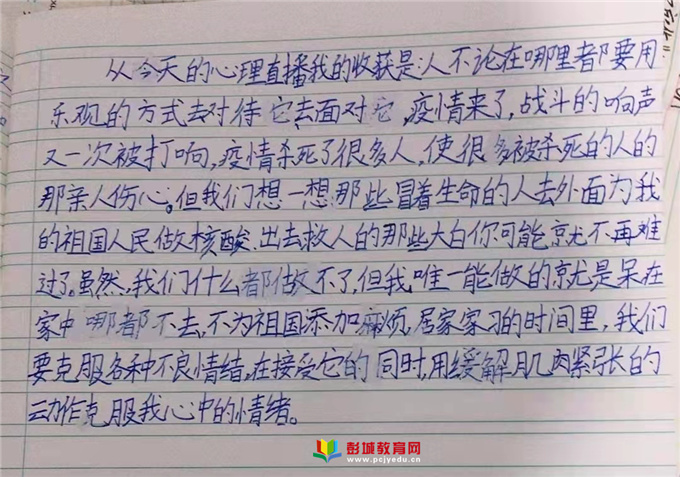 从今天的心理直播我的收获是:人不论在哪里都要用
乐观的方式去对待它去面对它,疫情来了,战斗的响声
又一次被打响,疫情杀死了很多人,使很多被杀死的人的
那亲人伤心。但我们想一想那些冒着生命的人去外面为我
的祖国人民做核酸、出去救人的那些大白你可能就不再难
过了。虽然,我们什么都做不了,但我唯一能做的就是呆在
家中哪都不去,不为祖国添加麻烦,居家家习的时间里,我们
要克服各种不良情绪,在接受它的同时,用缓解肌肉紧张的
动作克服我心中的情绪。
彭城教育网
www.pcjyedu.cn